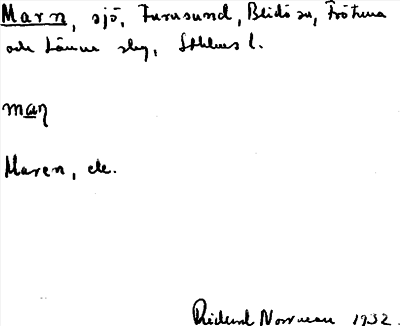 Marn, sjö, Furusund, Blidö sn, Frötuna
och Länna skg, Sthlms l.
maŋ
Maren, etc.
Rickard Norrman 1932.